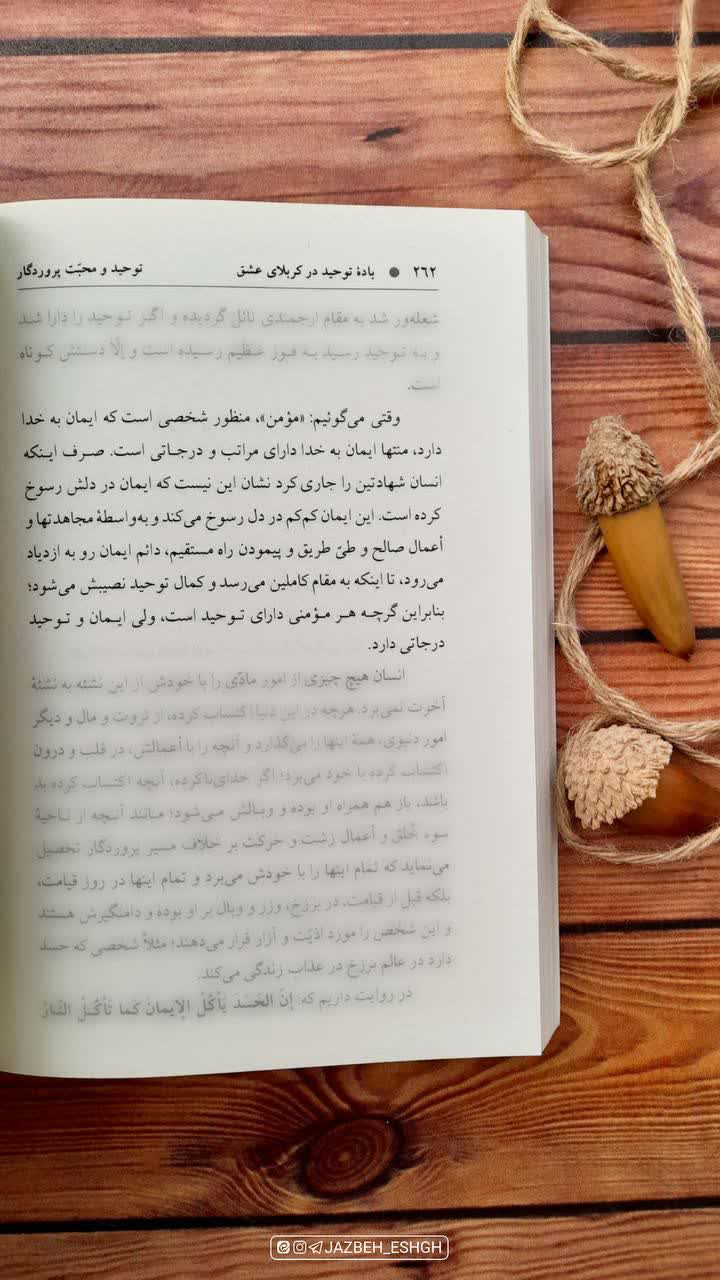 ۲۶۲ ● بادهٔ توحید در کربلای عشق توحید و محبّت پروردگار
شعله‌ور شد به مقام ارجمندی نائل گردیده و اگر توحید را دارا شد
و به توحید رسید به فوز عظیم رسیده است و إلّا دستش کوتاه
است.
وقتی می‌گوئیم: «مؤمن»، منظور شخصی است که ایمان به خدا
دارد، منتها ایمان به خدا دارای مراتب و درجاتی است. صرف اینکه
انسان شهادتین را جاری کرد نشان این نیست که ایمان در دلش رسوخ
کرده است. این ایمان کم‌کم در دل رسوخ می‌کند و به‌واسطهٔ مجاهدتها و
أعمال صالح و طیّ طریق و پیمودن راه مستقیم، دائم ایمان رو به ازدیاد
می‌رود، تا اینکه به مقام کاملین می‌رسد و کمال توحید نصیبش می‌شود؛
بنابراین گرچه هر مؤمنی دارای توحید است، ولی ایمان و توحید
درجاتی دارد.
انسان هیچ چیزی از امور مادّی را با خودش از این نشئه به نشئهٔ
آخرت نمی‌برد. هرچه در این دنیا اکتساب کرده، از ثروت و مال و دیگر
امور دنیوی، همهٔ اینها را می‌گذارد و آنچه را با أعمالش، در قلب و درون
اکتساب کرده با خود می‌برد؛ اگر خدای‌ناکرده، آنچه اکتساب کرده بد
باشد، باز هم همراه او بوده و وبالش می‌شود؛ مانند آنچه از ناحیهٔ
سوء خُلق و أعمال زشت و حرکت بر خلاف مسیر پروردگار تحصیل
می‌نماید که تمام اینها را با خودش می‌برد و تمام اینها در روز قیامت،
بلکه قبل از قیامت، در برزخ، وزر و وبال بر او بوده و دامنگیرش هستند
و این شخص را مورد اذیّت و آزار قرار می‌دهند؛ مثلاً شخصی که حسد
دارد در عالم برزخ در عذاب زندگی می‌کند.
در روایت داریم که: إنَّ الحَسَدَ یَأْکُلُ الإیمانَ کَما تَأْکُلُ النّارُ
JAZBEH_ESHGH